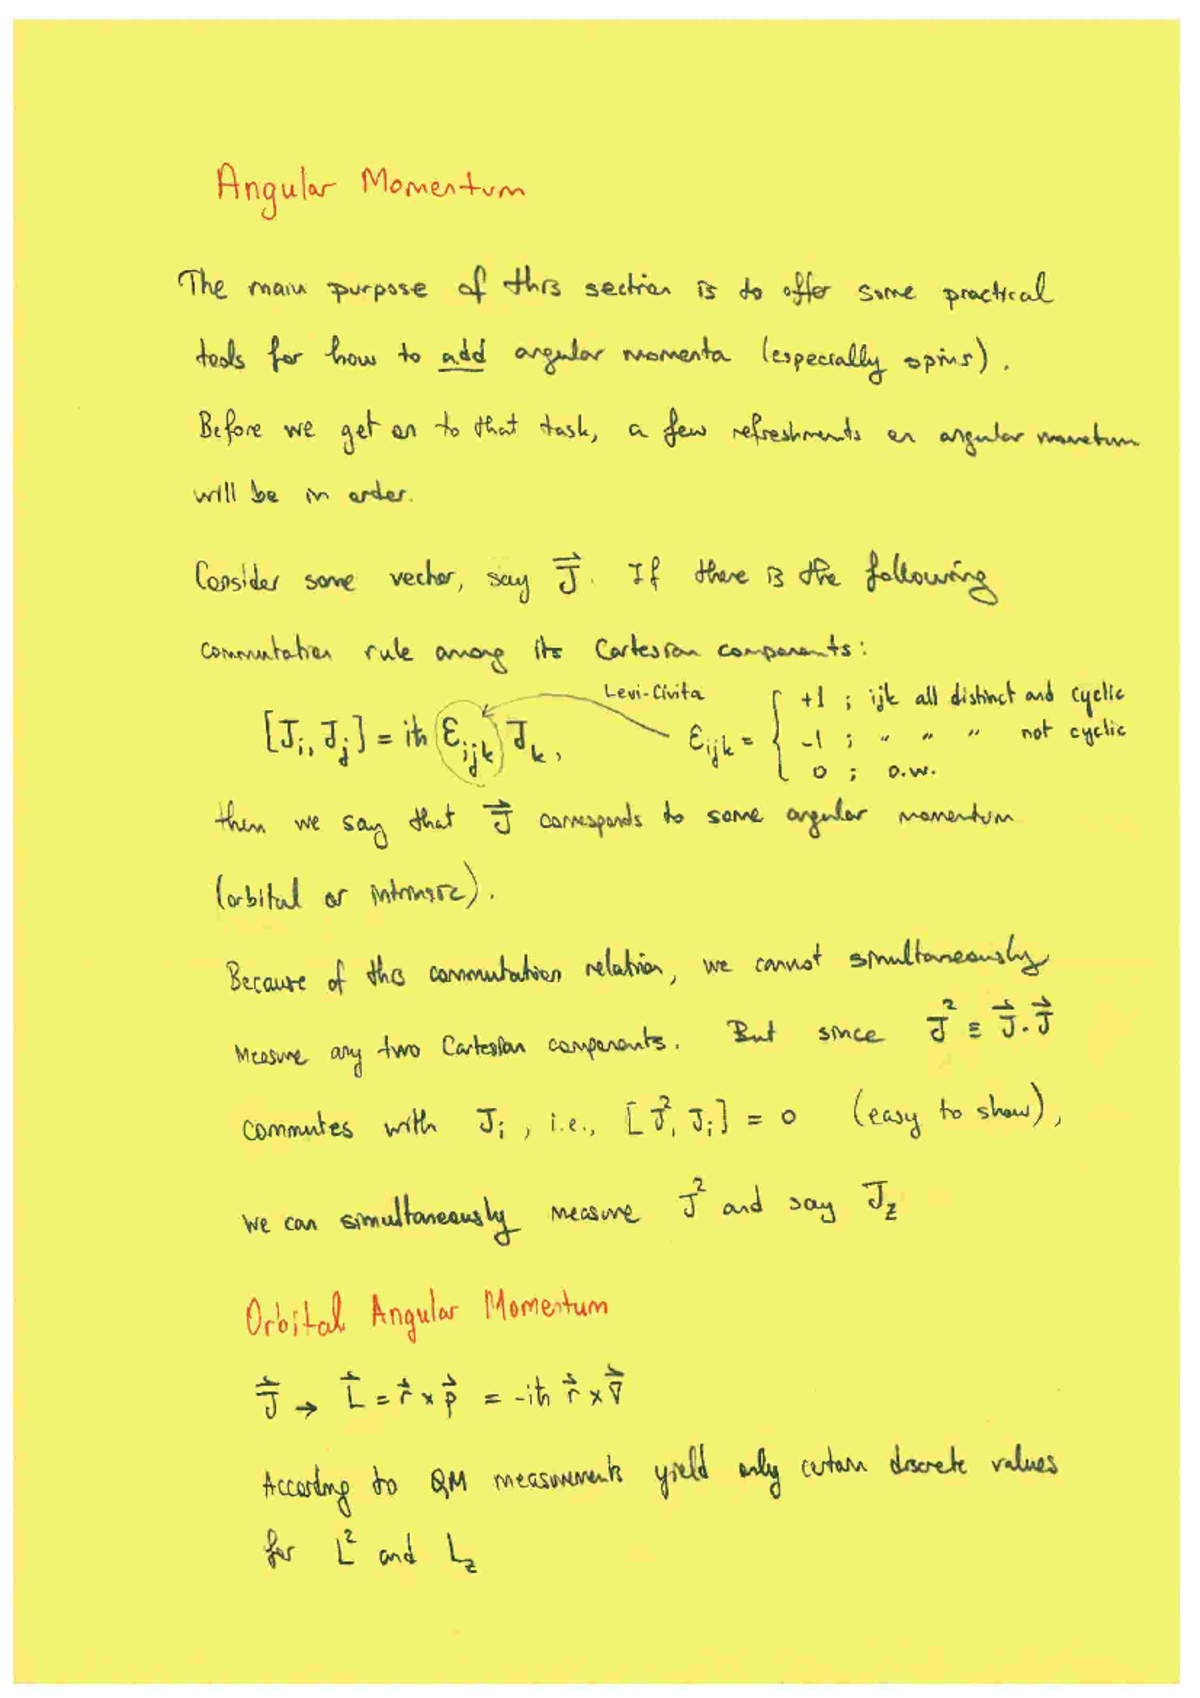 Angular Momentum
The main purpose of this section is to offer some practical
tools for how to add angular momenta (especially spins).
Before we get on to that task, a few refreshments on angular momentum
will be in order.
Consider some vector, say J⃗. If there is the following
commutation rule among its Cartesian components:
Levi-Civita
[Jᵢ, Jⱼ] = iħ εᵢⱼₖ Jₖ, εᵢⱼₖ = { +1 ; ijk all distinct and cyclic
-1 ; " " " not cyclic
0 ; o.w.
then we say that J⃗ corresponds to some angular momentum
(orbital or intrinsic).
Because of this commutation relation, we cannot simultaneously
measure any two Cartesian components. But since J² ≡ J⃗·J⃗
commutes with Jᵢ, i.e., [J², Jᵢ] = 0 (easy to show),
we can simultaneously measure J² and say J_z
Orbital Angular Momentum
J⃗ → L⃗ = r⃗ × p⃗ = -iħ r⃗ × ∇⃗
According to QM measurements yield only certain discrete values
for L² and L_z